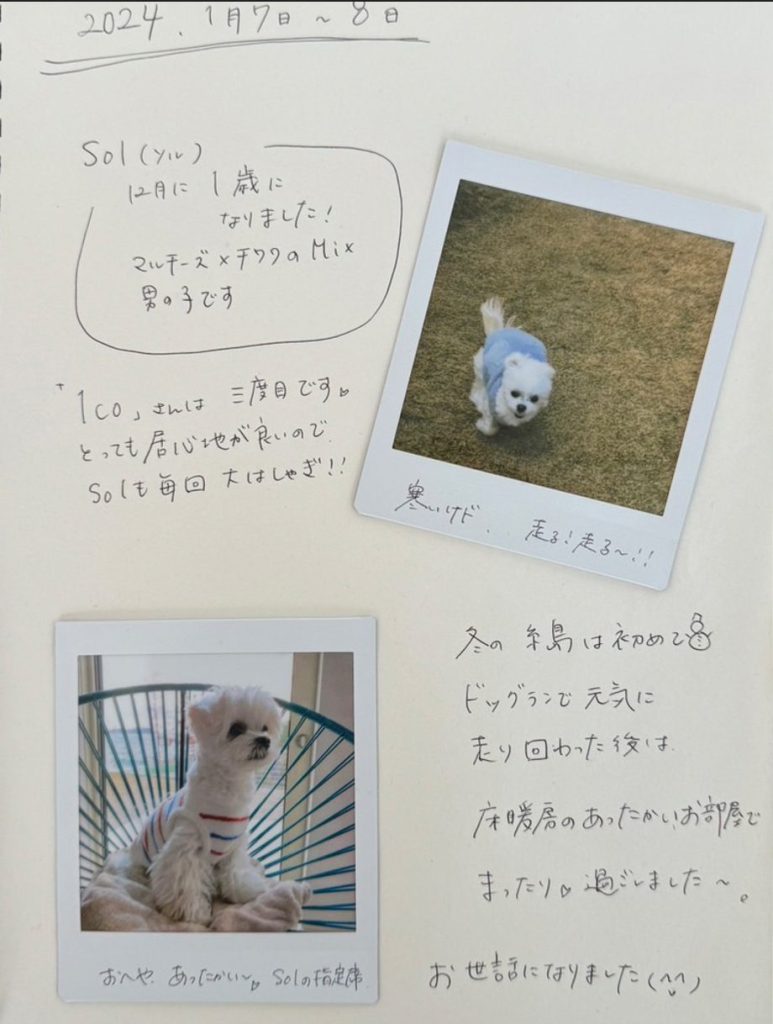 2024. 1月7日~8日
Sol(ソル)
12月に1歳に
なりました!
マルチーズ×チワワのMix
男の子です
「1co」さんは 三度目です♡
とっても居心地が良いので
Solも毎回 大はしゃぎ!!
寒いけど... 走る!走る~!!
冬の糸島は初めて⛄
ドッグランで元気に
走り回わった後は
床暖房のあったかいお部屋で
まったり♡過ごしました~。
おへや あったかい~♡ Solの指定席
お世話になりました(^^)